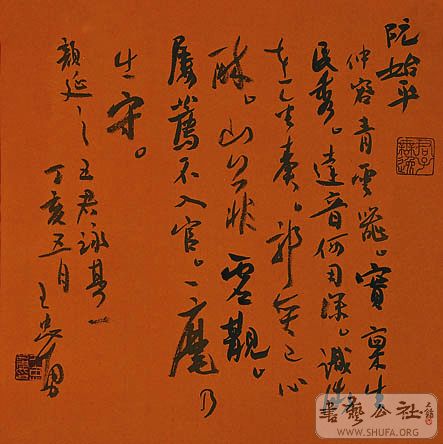 阮始平
仲容青雲器。實稟生
民秀。達音何用深。識微
在金奏。郭奕已心
醉。山公非虛覯。
屢薦不入官。一麾乃
出守。
顏延之五君詠其一
丁亥五月 王忠勇
書藝公社
WWW.SHUFA.ORG